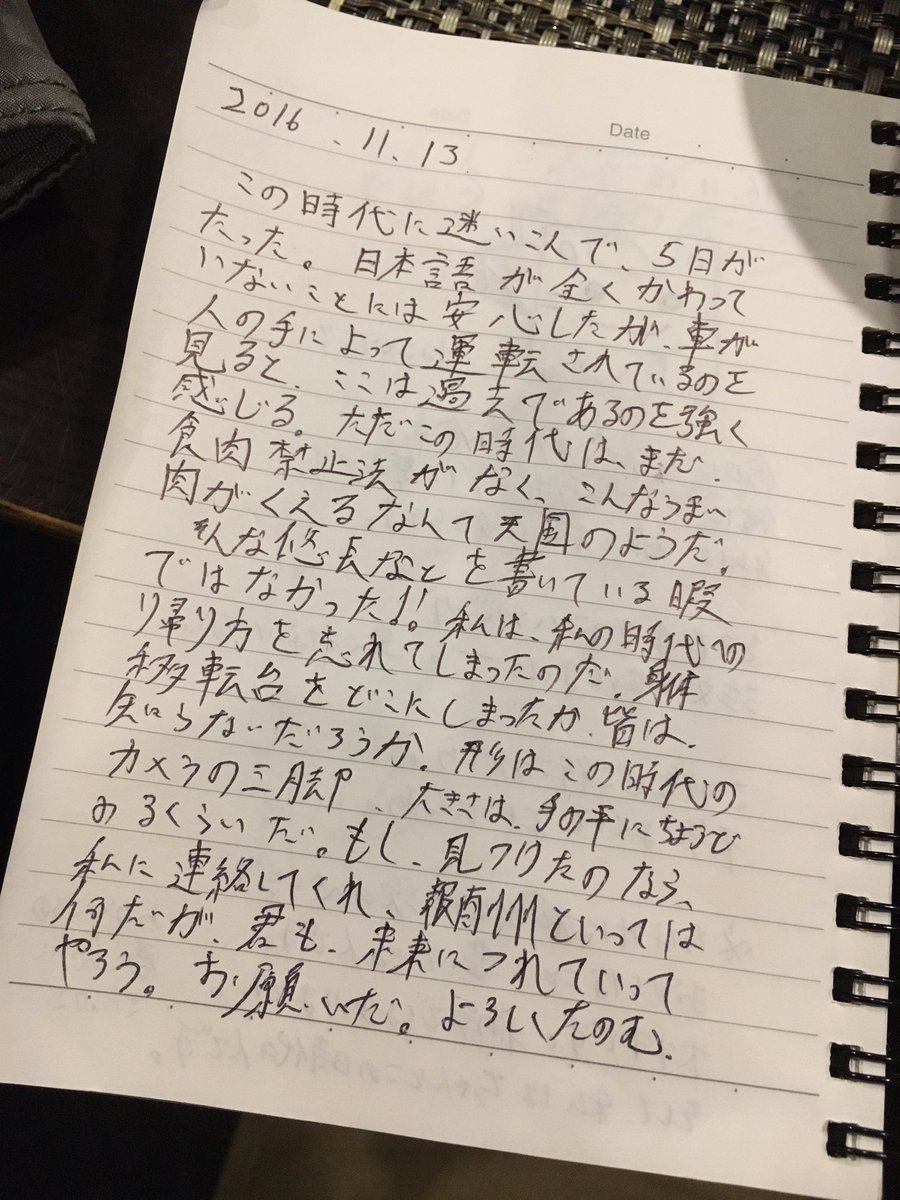 Date
2016.11.13
この時代に迷いこんで、5日が
たった。日本語が全くかわって
いないことには安心したが、車が
人の手によって運転されているのを
見ると、ここは過去であるのを強く
感じる。ただこの時代は、まだ
食肉禁止法がなく、こんなうまい
肉がくえるなんて天国のようだ。
そんな悠長なことを書いている暇
ではなかった!! 私は、私の時代への
帰り方を忘れてしまったのだ。身体
移転台をどこにしまったか、皆は、
知らないだろうか。形はこの時代の
カメラの三脚、大きさは、手の平にちょうど
のるくらいだ。もし、見つけたのなら、
私に連絡してくれ、報酬といっては
何だが、君も、未来につれていって
やろう。お願いだ。よろしくたのむ。